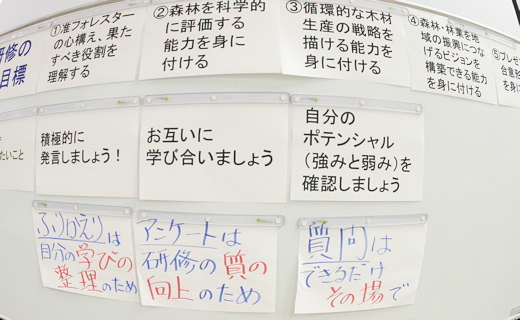 研修の
目標
①准フォレスター
の心構え、果た
すべき役割を
理解する
②森林を科学的
に評価する
能力を身に
付ける
③循環的な木材
生産の戦略を
描ける能力を
身に付ける
④森林・林業を地
域の振興につな
げるビジョンを
構築できる能力
を身に付ける
⑤プレゼ
合意
を身
たいこと
積極的に
発言しましょう！
お互いに
学び合いましょう
自分の
ポテンシャル
（強みと弱み）を
確認しましょう
ふりかえりは
自分の学びの
整理のため
アンケートは
研修の質の
向上のため
質問は
できるだけ
その場で